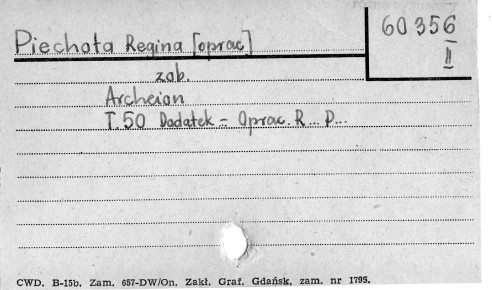 60356
II
Piechota Regina [oprac]
zob.
Archeion
T.50 Dodatek - Oprac. R... P...
CWD. B-15b. Zam. 657-DW/On. Zakł. Graf. Gdańsk, zam. nr 1795.